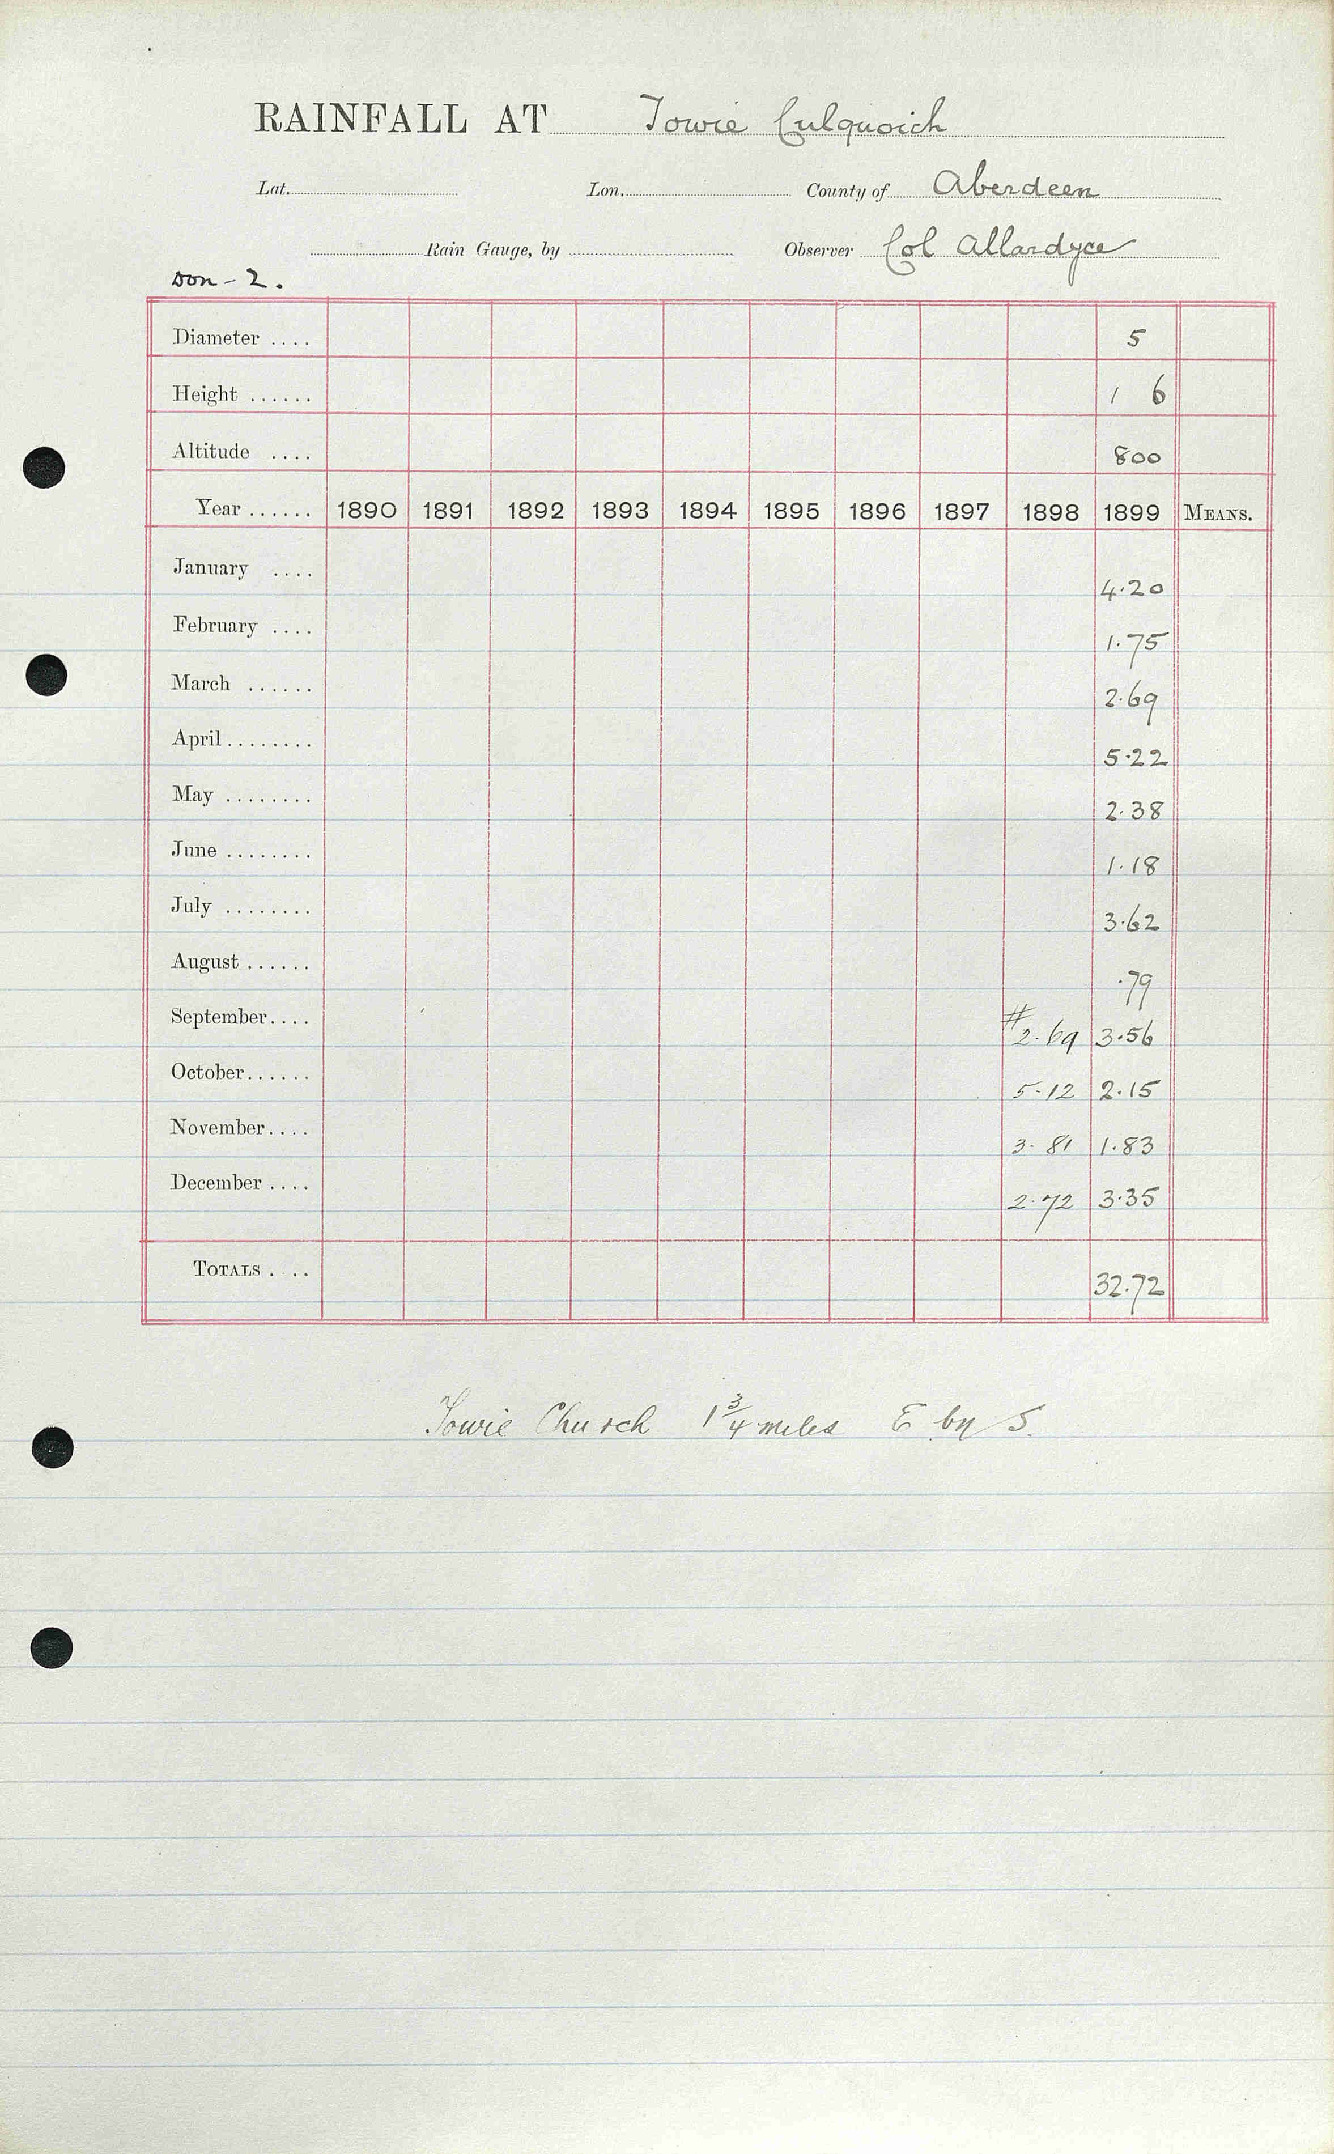 RAINFALL AT Towie Culquoich
Lat. Lon. County of Aberdeen
Rain Gauge, by Observer Col Allardyce
Don - 2.
Diameter .... 5
Height ...... 1 6
Altitude .... 800
Year ...... 1890 1891 1892 1893 1894 1895 1896 1897 1898 1899 MEANS.
January .... 4.20
February .... 1.75
March ...... 2.69
April ........ 5.22
May ........ 2.38
June ........ 1.18
July ........ 3.62
August ...... .79
September.... #2.69 3.56
October...... 5.12 2.15
November.... 3.81 1.83
December .... 2.72 3.35
TOTALS .... 32.72
Towie Church 1 3/4 miles E by S.